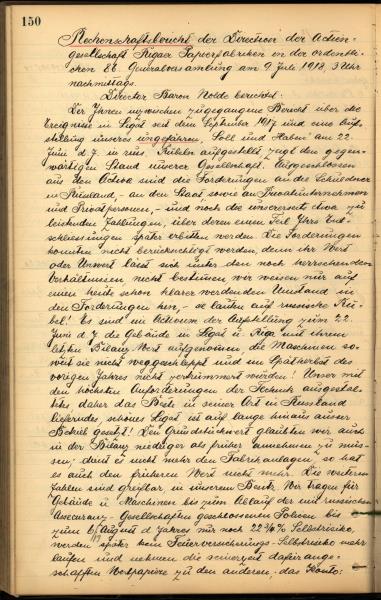 150
Rechenschaftsbericht der Direction der Actien-
gesellschaft Rigaer Papierfabriken in der ordentli-
chen 26. Generalversamlung am 9 Juli 1918, 3 Uhr
nachmittags.
Director Baron Nolde berichtet:
Der Ihnen inzwischen zugegangene Bericht über die
Ereignisse in Ligat seit dem September 1917 und eine Auf-
stellung unseres ungefähren „Soll und Haben" am 22
Juni d. J. in russ. Rubeln aufgestellt, zeigt den gegen-
wärtigen Stand unserer Gesellschaft. Ausgeschlossen
aus den Activa sind die Forderungen an die Schuldner
in Russland, an den Staat sowie an Privatunternehmen
und Privatpersonen, und noch die unsererseits etwa zu
leistenden Zahlungen, über deren einen Teil Ihre Ent-
schliessungen später erbitten werden. Die Forderungen
konnten nicht berücksichtigt werden, denn ihr Wert
oder Unwert lässt sich unter den noch herrschenden
Verhältnissen nicht bestimmen, wir weisen nur auf
einen heute schon klarer werdenden Umstand in
den Forderungen hin, – sie lauten auf russische Ru-
bel! Es sind im Activum der Aufstellung zum 22
Juni d. J. die Gebäude in Ligat u. Riga mit ihrem
letzten Bilanz Wert aufgenommen, die Maschinen so-
weit sie nicht weggeschleppt und im Spätherbst des
vorigen Jahres nicht zertrümmert wurden! Unser mit
den höchsten Anforderungen der Technik ausgestat-
tetes, daher das Beste, in seiner Art in Russland
lieferndes, schönes Ligat ist auf lange hinaus ausser
Betrieb gesetzt! Den Grundstückwert glaubten wir auch
in der Bilanz niedriger als früher annehmen zu müs-
sen, dient es nicht mehr den Fabrikanlagen, so hat
es auch den früheren Wert nicht mehr. Die weiteren
Zahlen sind greifbar, in unserem Besitz. Wir tragen für
Gebäude u. Maschinen bis zum Ablauf der mit russischen
Assecuranz-Gesellschaften geschlossenen Policen bis
zum August d Jahres nur noch 22 % Selbstrisiko,
werden später kein Feuerversicherungs-Selbstrisiko mehr
laufen und nehmen die seinerzeit dafür ange-
schafften Wertpapiere zu den anderen; das Conto: